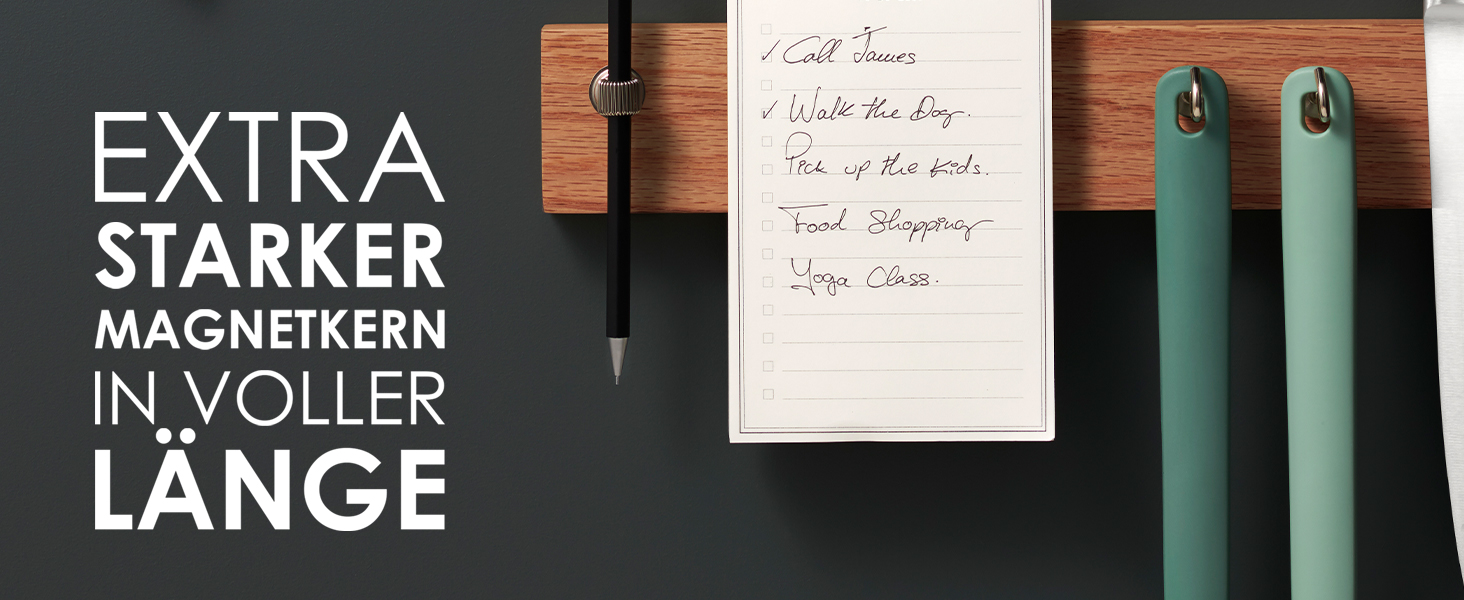 EXTRA
STARKER
MAGNETKERN
IN VOLLER
LÄNGE
Call James
Walk the Dog.
Pick up the Kids.
Food Shopping
Yoga Class.